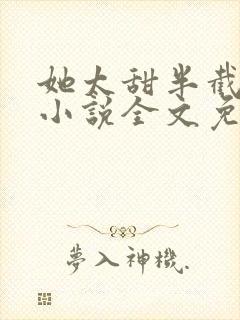 她太甜半截
小说全文免
夢入神機.